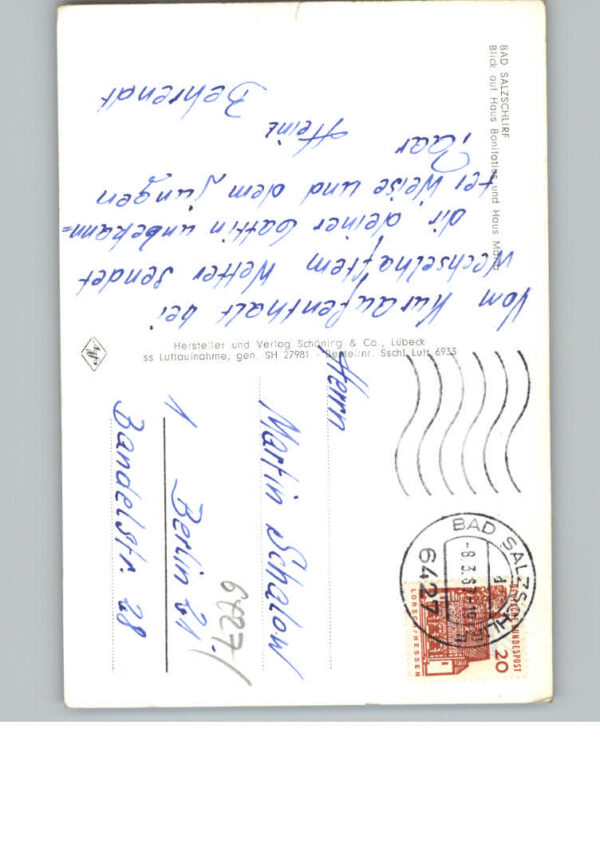 BAD SALZSCHLIRF
Blick auf Haus Bonifatius und Haus Maria
Vom Kuraufenthalt bei
wechselhaftem Wetter sendet
dir deiner Gattin unbekann=
ter Weise und dem jungen
Paar
Heinz
Behrendt
Hersteller und Verlag Schöning & Co., Lübeck
ss Luftaufnahme, gen. SH 27981 - Bestellnr. Sschl. Luft 6933
Agfa
Herrn
Martin Schalow
1 Berlin 21.
Bandelstr. 28
6427/
BAD SALZSCHLIRF
-8.3.67-19
6427
20
DEUTSCHE BUNDESPOST
LORSCH/HESSEN